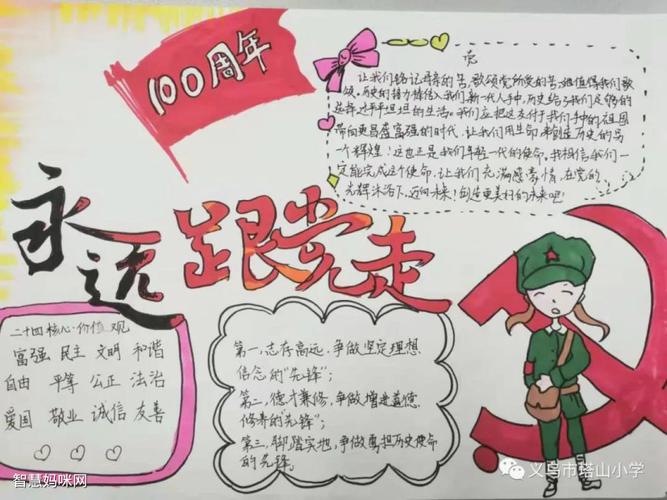 100周年
永远跟党走
党
让我们铭记辉煌的党,歌颂党所受的苦,她值得我们歌
颂。历史的接力棒传入我们新一代人手中,历史给予我们足够的
选择过平平坦坦的生活。我们应把这支付于我们手中的祖国
带向更昌盛富强的时代,让我们用生命来创造历史的另
一个辉煌!这也正是我们年轻一代的使命。我相信我们一
定能完成这个使命,让我们充满感豪情,在党的
光辉沐浴下,迈向未来!创造更美好的未来吧!
二十四核心·价值 观
富强 民主 文明 和谐
自由 平等 公正 法治
爱国 敬业 诚信 友善
第一,志存高远,争做坚定理想
信念的“先锋”;
第二,德才兼修,争做增进道德
修养的“先锋”;
第三,脚踏实地,争做勇担历史使命
的先锋。
智慧妈咪网
义乌市塔山小学